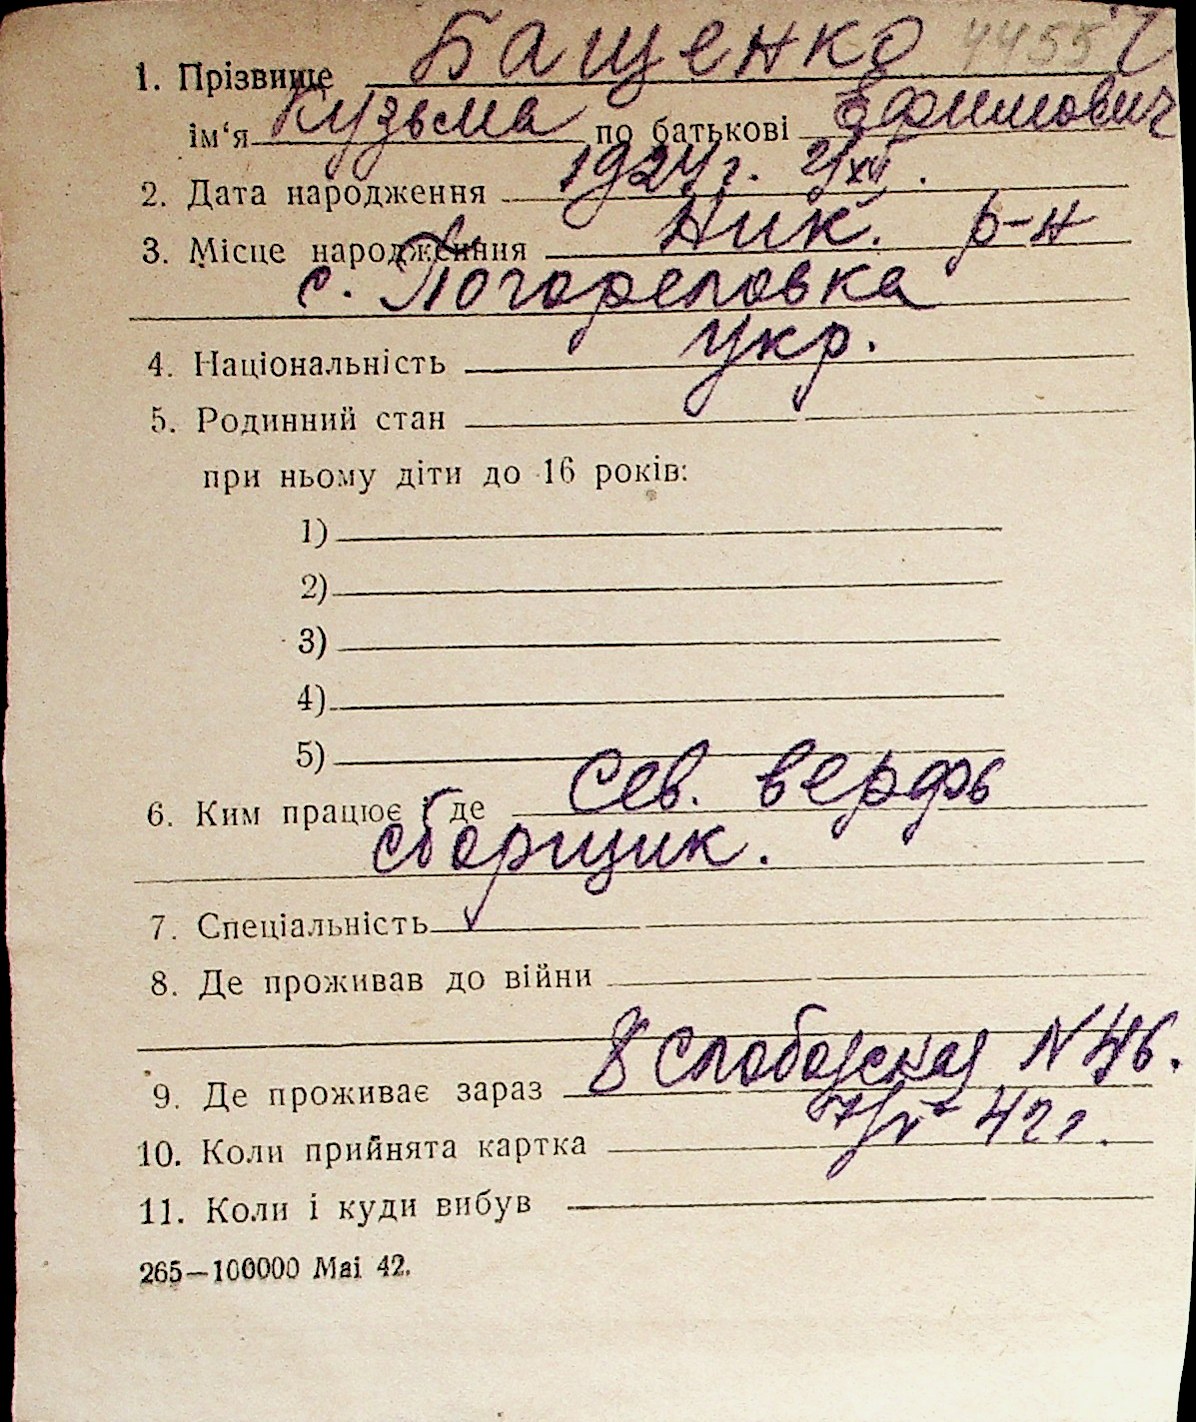 1. Прізвище Бащенко 4455
ім'я Кузьма по батькові Ефимович
2. Дата народження 1924 г.
3. Місце народження Ник. р-н
с. Погореловка
4. Національність Укр.
5. Родинний стан
при ньому діти до 16 років:
1)
2)
3)
4)
5)
6. Ким працює і де Сев. верфь
сборщик.
7. Спеціальність
8. Де проживав до війни
9. Де проживає зараз 8 Слободская N 46.
10. Коли прийнята картка 42 г.
11. Коли і куди вибув
265—100000 Mai 42.